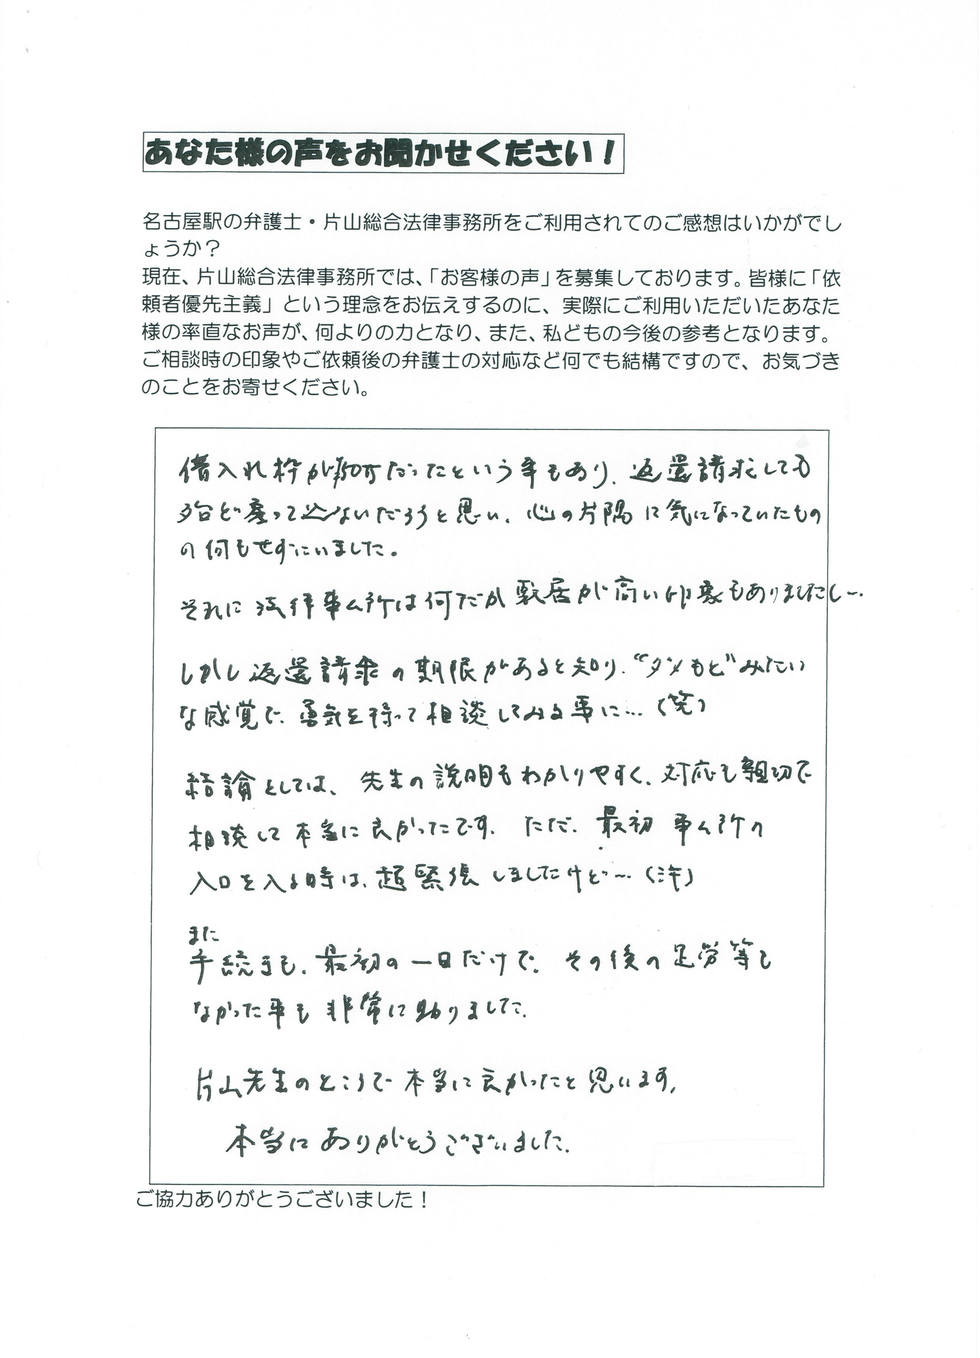 あなた様の声をお聞かせください！
名古屋駅の弁護士・片山総合法律事務所をご利用されてのご感想はいかがでし
ょうか？
現在、片山総合法律事務所では、「お客様の声」を募集しております。皆様に「依
頼者優先主義」という理念をお伝えするのに、実際にご利用いただいたあなた
様の率直なお声が、何よりの力となり、また、私どもの今後の参考となります。
ご相談時の印象やご依頼後の弁護士の対応など何でも結構ですので、お気づき
のことをお寄せください。
借入れ枠がだったという事もあり、返還請求しても
殆ど戻って込ないだろうと思い、心の片隅に気になっていたもの
の何もせずにいました。
それに法律事ム所は何だか敷居が高い印象もありましたし〜.
しかし返還請求の期限があると知り、“ダメもと”みたい
な感覚で、勇気を持って相談してみる事に…（笑）
結論としては、先生の説明もわかりやすく、対応も親切で
相談して本当に良かったです。ただ、最初 事ム所の
入口を入る時は、超緊張しましたけど〜.（汗）
また
手続きも、最初の一日だけで、その後の足労等も
なかった事も非常に助りました。
片山先生のところで本当に良かったと思います。
本当にありがとうございました。
ご協力ありがとうございました！